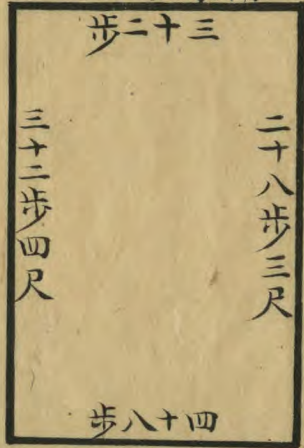 三十二步
二十八步三尺
三十二步四尺
四十八步